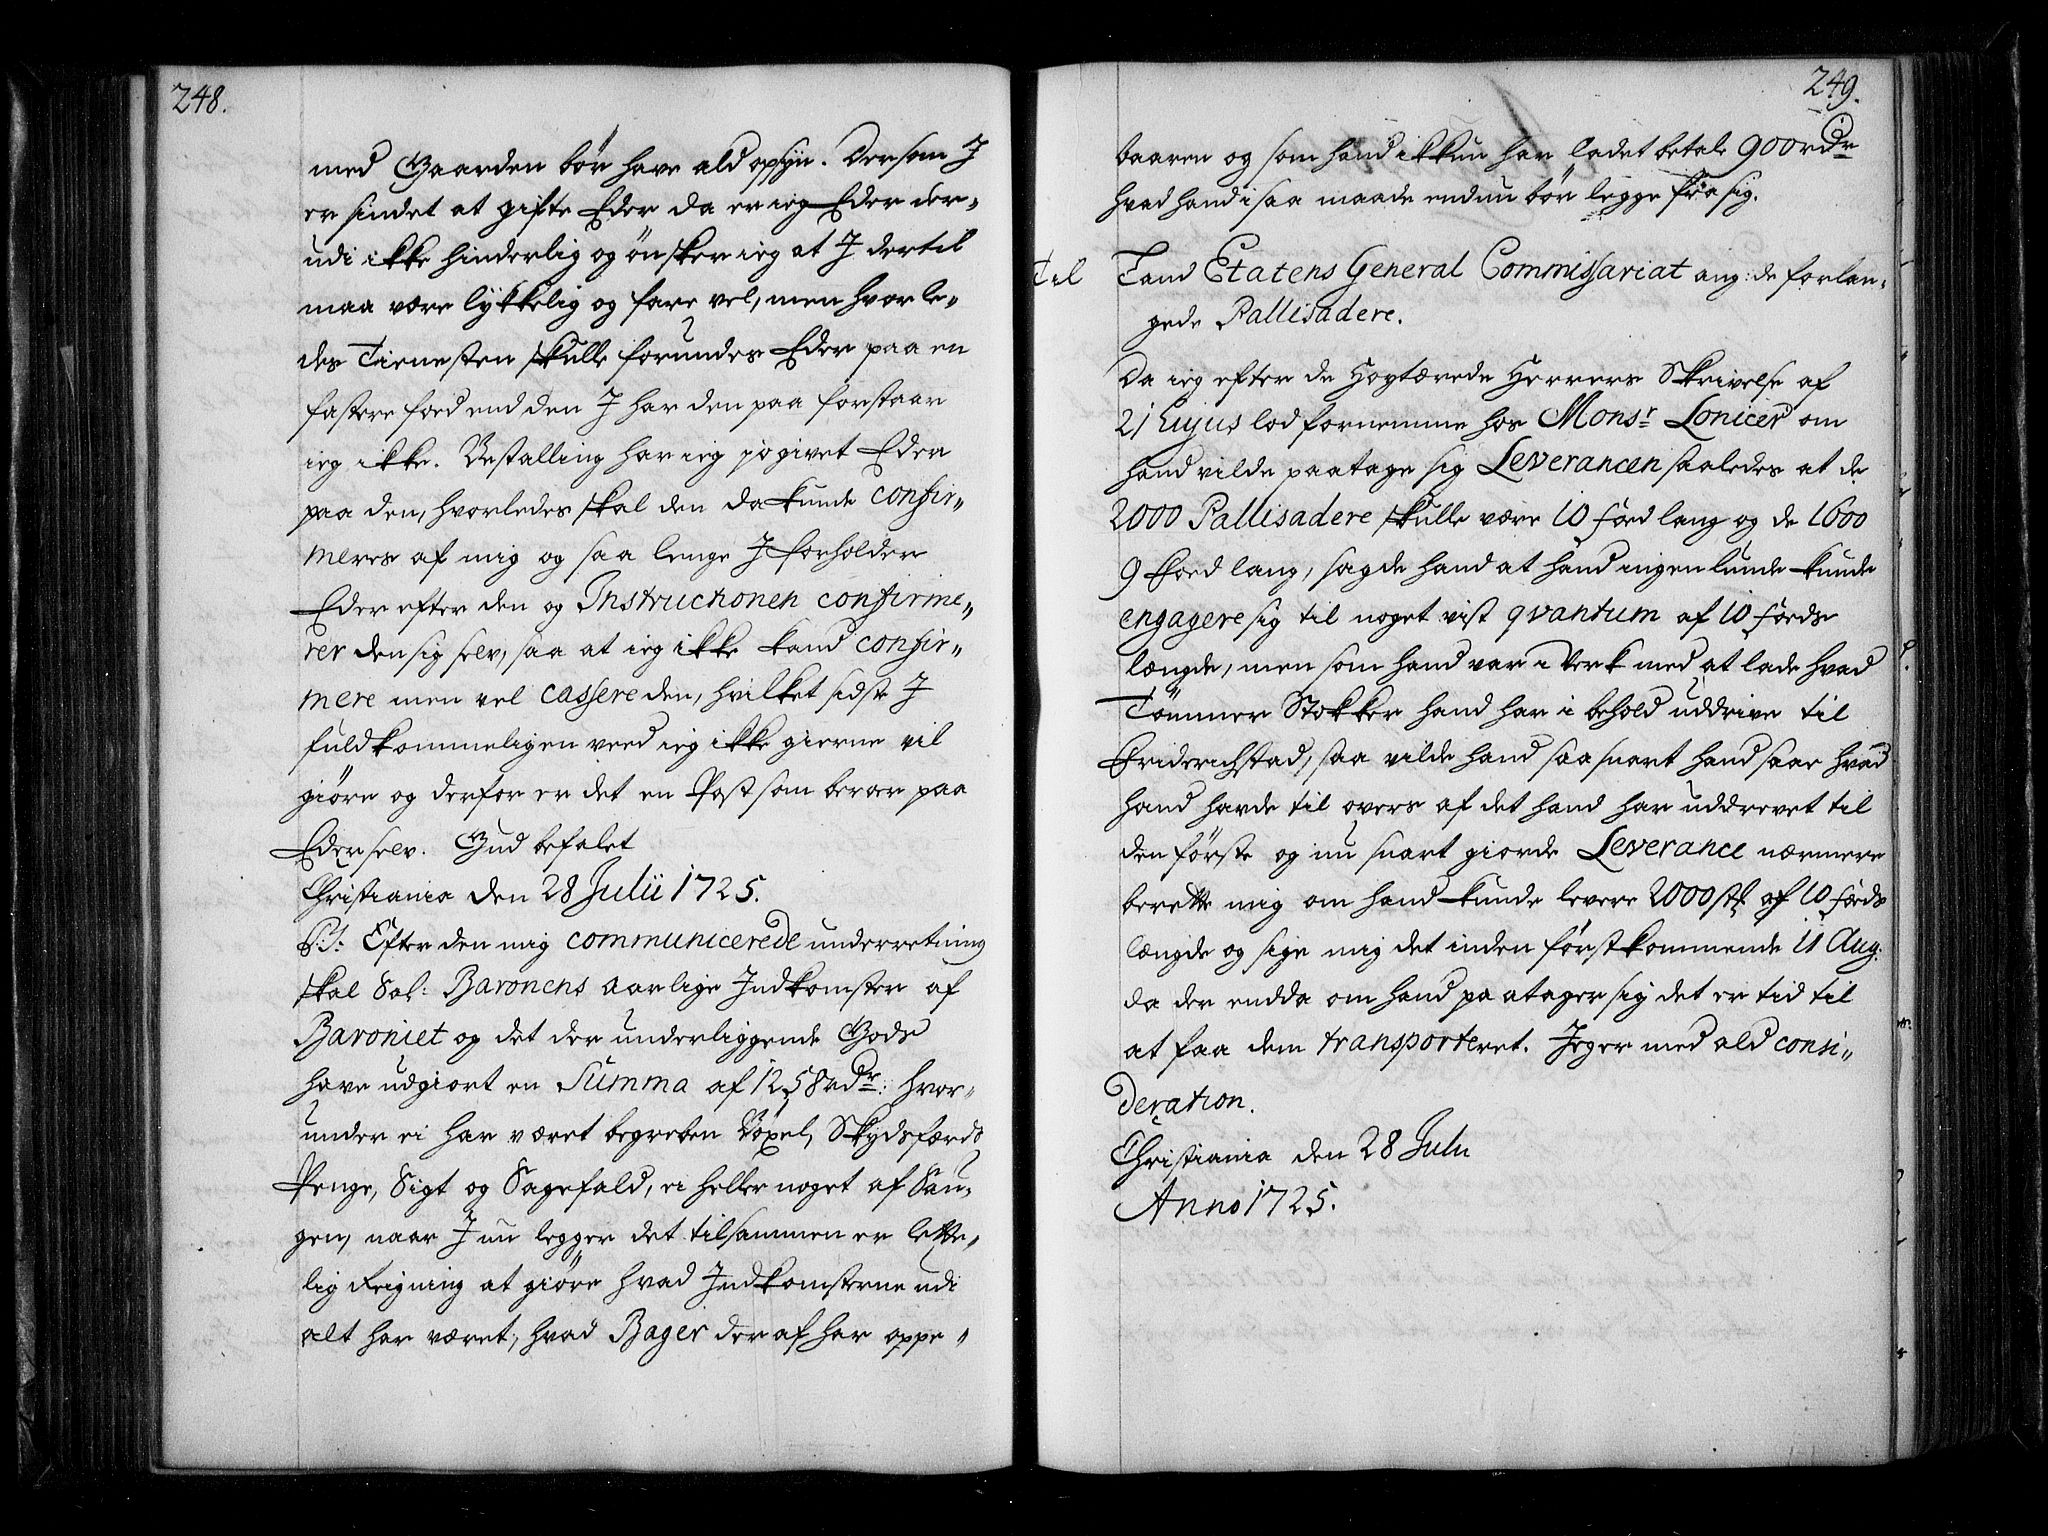 248.
med Gaarden bør have ald opsyn. Dersom I
er sindet at gifte Eder da er ieg Eder der„
udi ikke hinderlig og ønsker ieg at I dertil
maa være lykkelig og fare vel, men hvorle„
des Tienesten skulle forundes Eder paa en
fastere foed end den I har den paa forstaar
ieg ikke. Bestalling har ieg jo givet Eder
paa den, hvorledes skal den da kunde confir„
meres af mig og saa lenge I forholder
Eder efter den og Instructionen confirme„
rer den sig selv, saa at ieg ikke kand confir„
mere men vel cassere den, hvilket sidste I
fuldkommeligen veed ieg ikke gierne vil
giøre og derfor er det en Post som beroer paa
Eder selv. Gud befalet
Christiania den 28 Julii 1725.
P.S: Efter den mig communicerede underretning
skal Sal: Baronens aarlige Indkomster af
Baroniet og det der underliggende Gods
have udgiort en Summa af 1258 rdr: hvor„
under ei har været begreben Røxel, Skydsferds
Penge, Sigt og Sagefald, ei heller noget af Sau„
gen, naar I nu legger det tilsammen er lette„
lig Reigning at giøre hvad Indkomsterne udi
alt har været, hvad Bager der af har oppe„
249.
baaren og som hand ikkun har ladet betale 900 rdr
hvad hand i saa maade endnu bør legge fra sig.
Til Land Etatens General Commissariat ang: de forlan„
gede Pallisadere.
Da ieg efter de Høytærede Herrers Skrivelse af
21 hujus lod fornemme hos Monsr Lonicer om
hand vilde paatage sig Leverancen saaledes at de
2000 Pallisadere skulle være 10 foed lang og de 1600
9 Foed lang, sagde hand at hand ingenlunde kunde
engagere sig til noget vist qvantum af 10 foeds
længde, men som hand var i Verk med at lade hvad
Tømmer Stokker hand har i behold uddrive til
Friderichstad, saa vilde hand saa snart hand saae hvad
hand havde til overs af det hand har uddrevet til
den første og nu snart giorde Leverance nærmere
berette mig om hand kunde levere 2000 stk af 10 foeds
længde og sige mig det inden førstkommende 11 Aug:
da der endda om hand paatager sig det er tid til
at faa dem transporteret. Jeg er med ald consi„
deration.
Christiania den 28 Julii
Anno 1725.